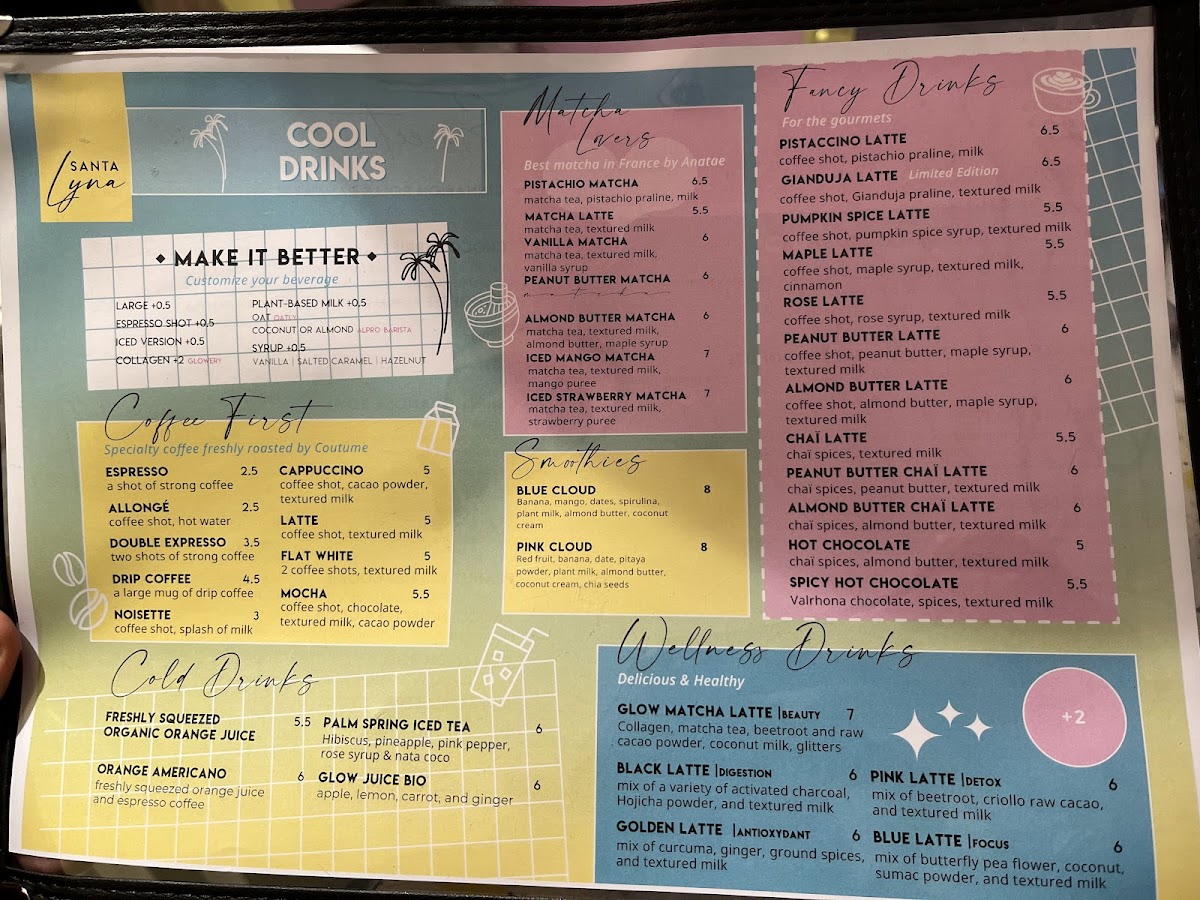 SANTA
Lyna
COOL
DRINKS
MAKE IT BETTER
Customize your beverage
LARGE +0.5
ESPRESSO SHOT +0.5
ICED VERSION +0.5
COLLAGEN +2 GLOWERY
PLANT-BASED MILK +0,5
OAT OATLY
COCONUT OR ALMOND ALPRO BARISTA
SYRUP +0.5
VANILLA | SALTED CARAMEL | HAZELNUT
Coffee First
Specialty coffee freshly roasted by Coutume
ESPRESSO 2.5
a shot of strong coffee
ALLONGÉ 2.5
coffee shot, hot water
DOUBLE EXPRESSO 3.5
two shots of strong coffee
DRIP COFFEE 4.5
a large mug of drip coffee
NOISETTE 3
coffee shot, splash of milk
CAPPUCCINO 5
coffee shot, cacao powder,
textured milk
LATTE 5
coffee shot, textured milk
FLAT WHITE 5
2 coffee shots, textured milk
MOCHA 5.5
coffee shot, chocolate,
textured milk, cacao powder
Cold Drinks
FRESHLY SQUEEZED 5.5
ORGANIC ORANGE JUICE
ORANGE AMERICANO 6
freshly squeezed orange juice
and espresso coffee
PALM SPRING ICED TEA 6
Hibiscus, pineapple, pink pepper,
rose syrup & nata coco
GLOW JUICE BIO 6
apple, lemon, carrot, and ginger
Matcha
Lovers
Best matcha in France by Anatae
PISTACHIO MATCHA 6.5
matcha tea, pistachio praline, milk
MATCHA LATTE 5.5
matcha tea, textured milk
VANILLA MATCHA 6
matcha tea, textured milk,
vanilla syrup
PEANUT BUTTER MATCHA 6
matcha
ALMOND BUTTER MATCHA 6
matcha tea, textured milk,
almond butter, maple syrup
ICED MANGO MATCHA 7
matcha tea, textured milk,
mango puree
ICED STRAWBERRY MATCHA 7
matcha tea, textured milk,
strawberry puree
Smoothies
BLUE CLOUD 8
Banana, mango, dates, spirulina,
plant milk, almond butter, coconut
cream
PINK CLOUD 8
Red fruit, banana, date, pitaya
powder, plant milk, almond butter,
coconut cream, chia seeds
Fancy Drinks
For the gourmets
PISTACCINO LATTE 6.5
coffee shot, pistachio praline, milk
GIANDUJA LATTE Limited Edition 6.5
coffee shot, Gianduja praline, textured milk
PUMPKIN SPICE LATTE 5.5
coffee shot, pumpkin spice syrup, textured milk
MAPLE LATTE 5.5
coffee shot, maple syrup, textured milk,
cinnamon
ROSE LATTE 5.5
coffee shot, rose syrup, textured milk
PEANUT BUTTER LATTE 6
coffee shot, peanut butter, maple syrup,
textured milk
ALMOND BUTTER LATTE 6
coffee shot, almond butter, maple syrup,
textured milk
CHAÏ LATTE 5.5
chaï spices, textured milk
PEANUT BUTTER CHAÏ LATTE 6
chaï spices, peanut butter, textured milk
ALMOND BUTTER CHAÏ LATTE 6
chaï spices, almond butter, textured milk
HOT CHOCOLATE 5
chaï spices, almond butter, textured milk
SPICY HOT CHOCOLATE 5.5
Valrhona chocolate, spices, textured milk
Wellness Drinks
Delicious & Healthy
GLOW MATCHA LATTE |BEAUTY 7
Collagen, matcha tea, beetroot and raw
cacao powder, coconut milk, glitters
+2
BLACK LATTE |DIGESTION 6
mix of a variety of activated charcoal,
Hojicha powder, and textured milk
GOLDEN LATTE |ANTIOXYDANT 6
mix of curcuma, ginger, ground spices,
and textured milk
PINK LATTE |DETOX 6
mix of beetroot, criollo raw cacao,
and textured milk
BLUE LATTE |FOCUS 6
mix of butterfly pea flower, coconut,
sumac powder, and textured milk